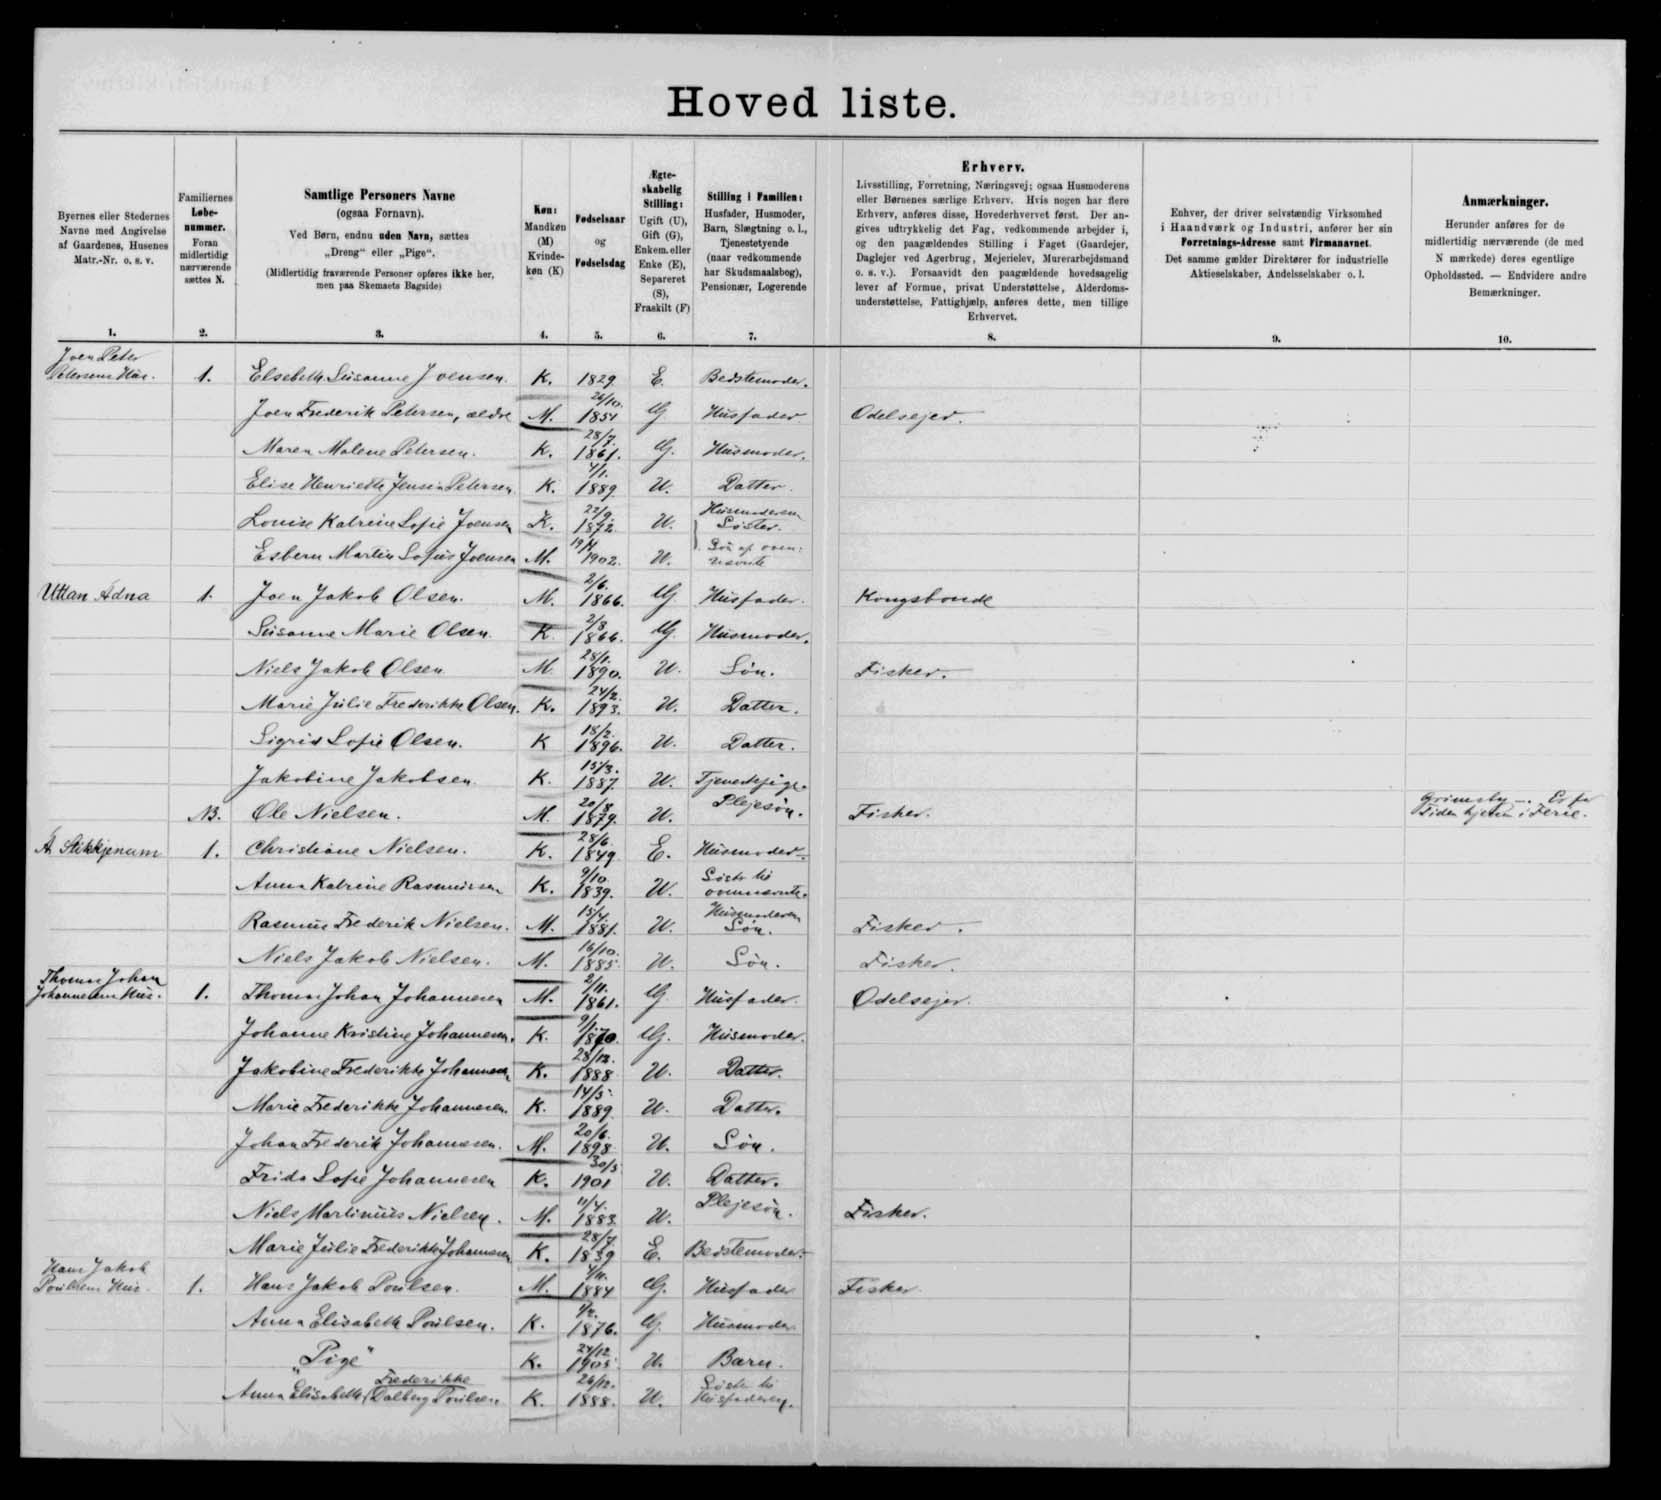 Hoved liste.
Byernes eller Stedernes
Navne med Angivelse
af Gaardenes, Husenes
Matr.-Nr. o. s. v.
1.
Familiernes
Løbe-
nummer.
Foran
midlertidig
nærværende
sættes N.
2.
Samtlige Personers Navne
(ogsaa Fornavn).
Ved Børn, endnu uden Navn, sættes
„Dreng“ eller „Pige“.
(Midlertidig fraværende Personer opføres ikke her,
men paa Skemaets Bagside)
3.
Køn:
Mandkøn
(M)
Kvinde-
køn (K)
4.
Fødselsaar
og
Fødselsdag
5.
Ægte-
skabelig
Stilling:
Ugift (U),
Gift (G),
Enkem. eller
Enke (E),
Separeret
(S),
Fraskilt (F)
6.
Stilling i Familien:
Husfader, Husmoder,
Barn, Slægtning o. l.,
Tjenestetyende
(naar vedkommende
har Skudsmaalsbog),
Pensionær, Logerende
7.
Erhverv.
Livsstilling, Forretning, Næringsvej; ogsaa Husmoderens
eller Børnenes særlige Erhverv. Hvis nogen har flere
Erhverv, anføres disse, Hovederhvervet først. Der an-
gives udtrykkelig det Fag, vedkommende arbejder i,
og den paagældendes Stilling i Faget (Gaardejer,
Daglejer ved Agerbrug, Mejerielev, Murerarbejdsmand
o. s. v.). Forsaavidt den paagældende hovedsagelig
lever af Formue, privat Understøttelse, Alderdoms-
understøttelse, Fattighjælp, anføres dette, men tillige
Erhvervet.
8.
Enhver, der driver selvstændig Virksomhed
i Haandværk og Industri, anfører her sin
Forretnings-Adresse samt Firmanavnet.
Det samme gælder Direktører for industrielle
Aktieselskaber, Andelsselskaber o. l.
9.
Anmærkninger.
Herunder anføres for de
midlertidig nærværende (de med
N mærkede) deres egentlige
Opholdssted. — Endvidere andre
Bemærkninger.
10.
Joen Peter
Petersens Hus. 1. Elsebeth Susanne Joensen. K. 1829 26/10. E. Bedstemoder.
Joen Frederik Petersen, ældre M. 1851 28/7. G Husfader. Odelsejer.
Maren Malene Petersen. K. 1861. G. Husmoder.
Elise Henriette Jensin Petersen K. 1889 U. Datter.
Louise Katrine Sofie Joensen K. 22/9. 1872 U. Husmoderens Søster.
Esbern Martin Sofus Joensen M. 1902. U. Søn af oven-nævnte
Uttan Adna 1. Joen Jakob Olsen. M. 2/6. 1866. G Husfader. Kongsbonde
Susanne Marie Olsen. K 2/8 1866. G. Husmoder.
Niels Jakob Olsen M. 28/1. 1890. U. Søn. Fisker.
Marie Julie Frederikke Olsen. K. 24/2. 1893. U. Datter.
Sigrid Sofie Olsen. K 18/2. 1896. U. Datter.
Jakobine Jakobsen. K. 15/3. 1887. U. Tjenestepige.
N. Ole Nielsen. M. 20/8 1879. U. Plejesøn. Fisker. Grimsby
A Stikkjenum 1. Christiane Nielsen. K. 28/6 1849. E. Husmoder.
Anna Katrine Rasmussen K. 9/10 1839. U. Søster til ovennævnte.
Rasmus Frederik Nielsen. M. 15/4. 1881. U. Husmoderens Søn. Fisker.
Niels Jakob Nielsen. M. 16/10. 1885 U. Søn. Fisker.
Thomas Johan
Johannesens Hus. 1. Thomas Johan Johannesen M. 2/11. 1861. G Husfader. Odelsejer.
Johanne Kristine Johannesen. K. 9/1. 1870. G. Husmoder.
Jakobine Frederikke Johannesen K. 28/12. 1888 U. Datter.
Marie Frederikke Johannesen. K. 14/5. 1889 U. Datter.
Johan Frederik Johannesen. M. 20/6. 1898 U. Søn.
Frida Sofie Johannesen K. 30/5 1901 U. Datter.
Niels Martinus Nielsen. M. 11/4. 1883 U. Plejesøn. Fisker.
Marie Julie Frederikke Johannesen K. 28/7. 1839 E. Bedstemoder.
Hans Jakob
Poulsens Hus. 1. Hans Jakob Poulsen. M. 1884 G. Husfader Fisker.
Anna Elisabeth Poulsen. K. 1/2. 1876. G. Husmoder
„Pige“ K. 24/12 1905 U. Barn.
Anna Elisabeth Frederikke Dalberg Poulsen K. 26/12. 1888. U. Søster til Husfaderen.